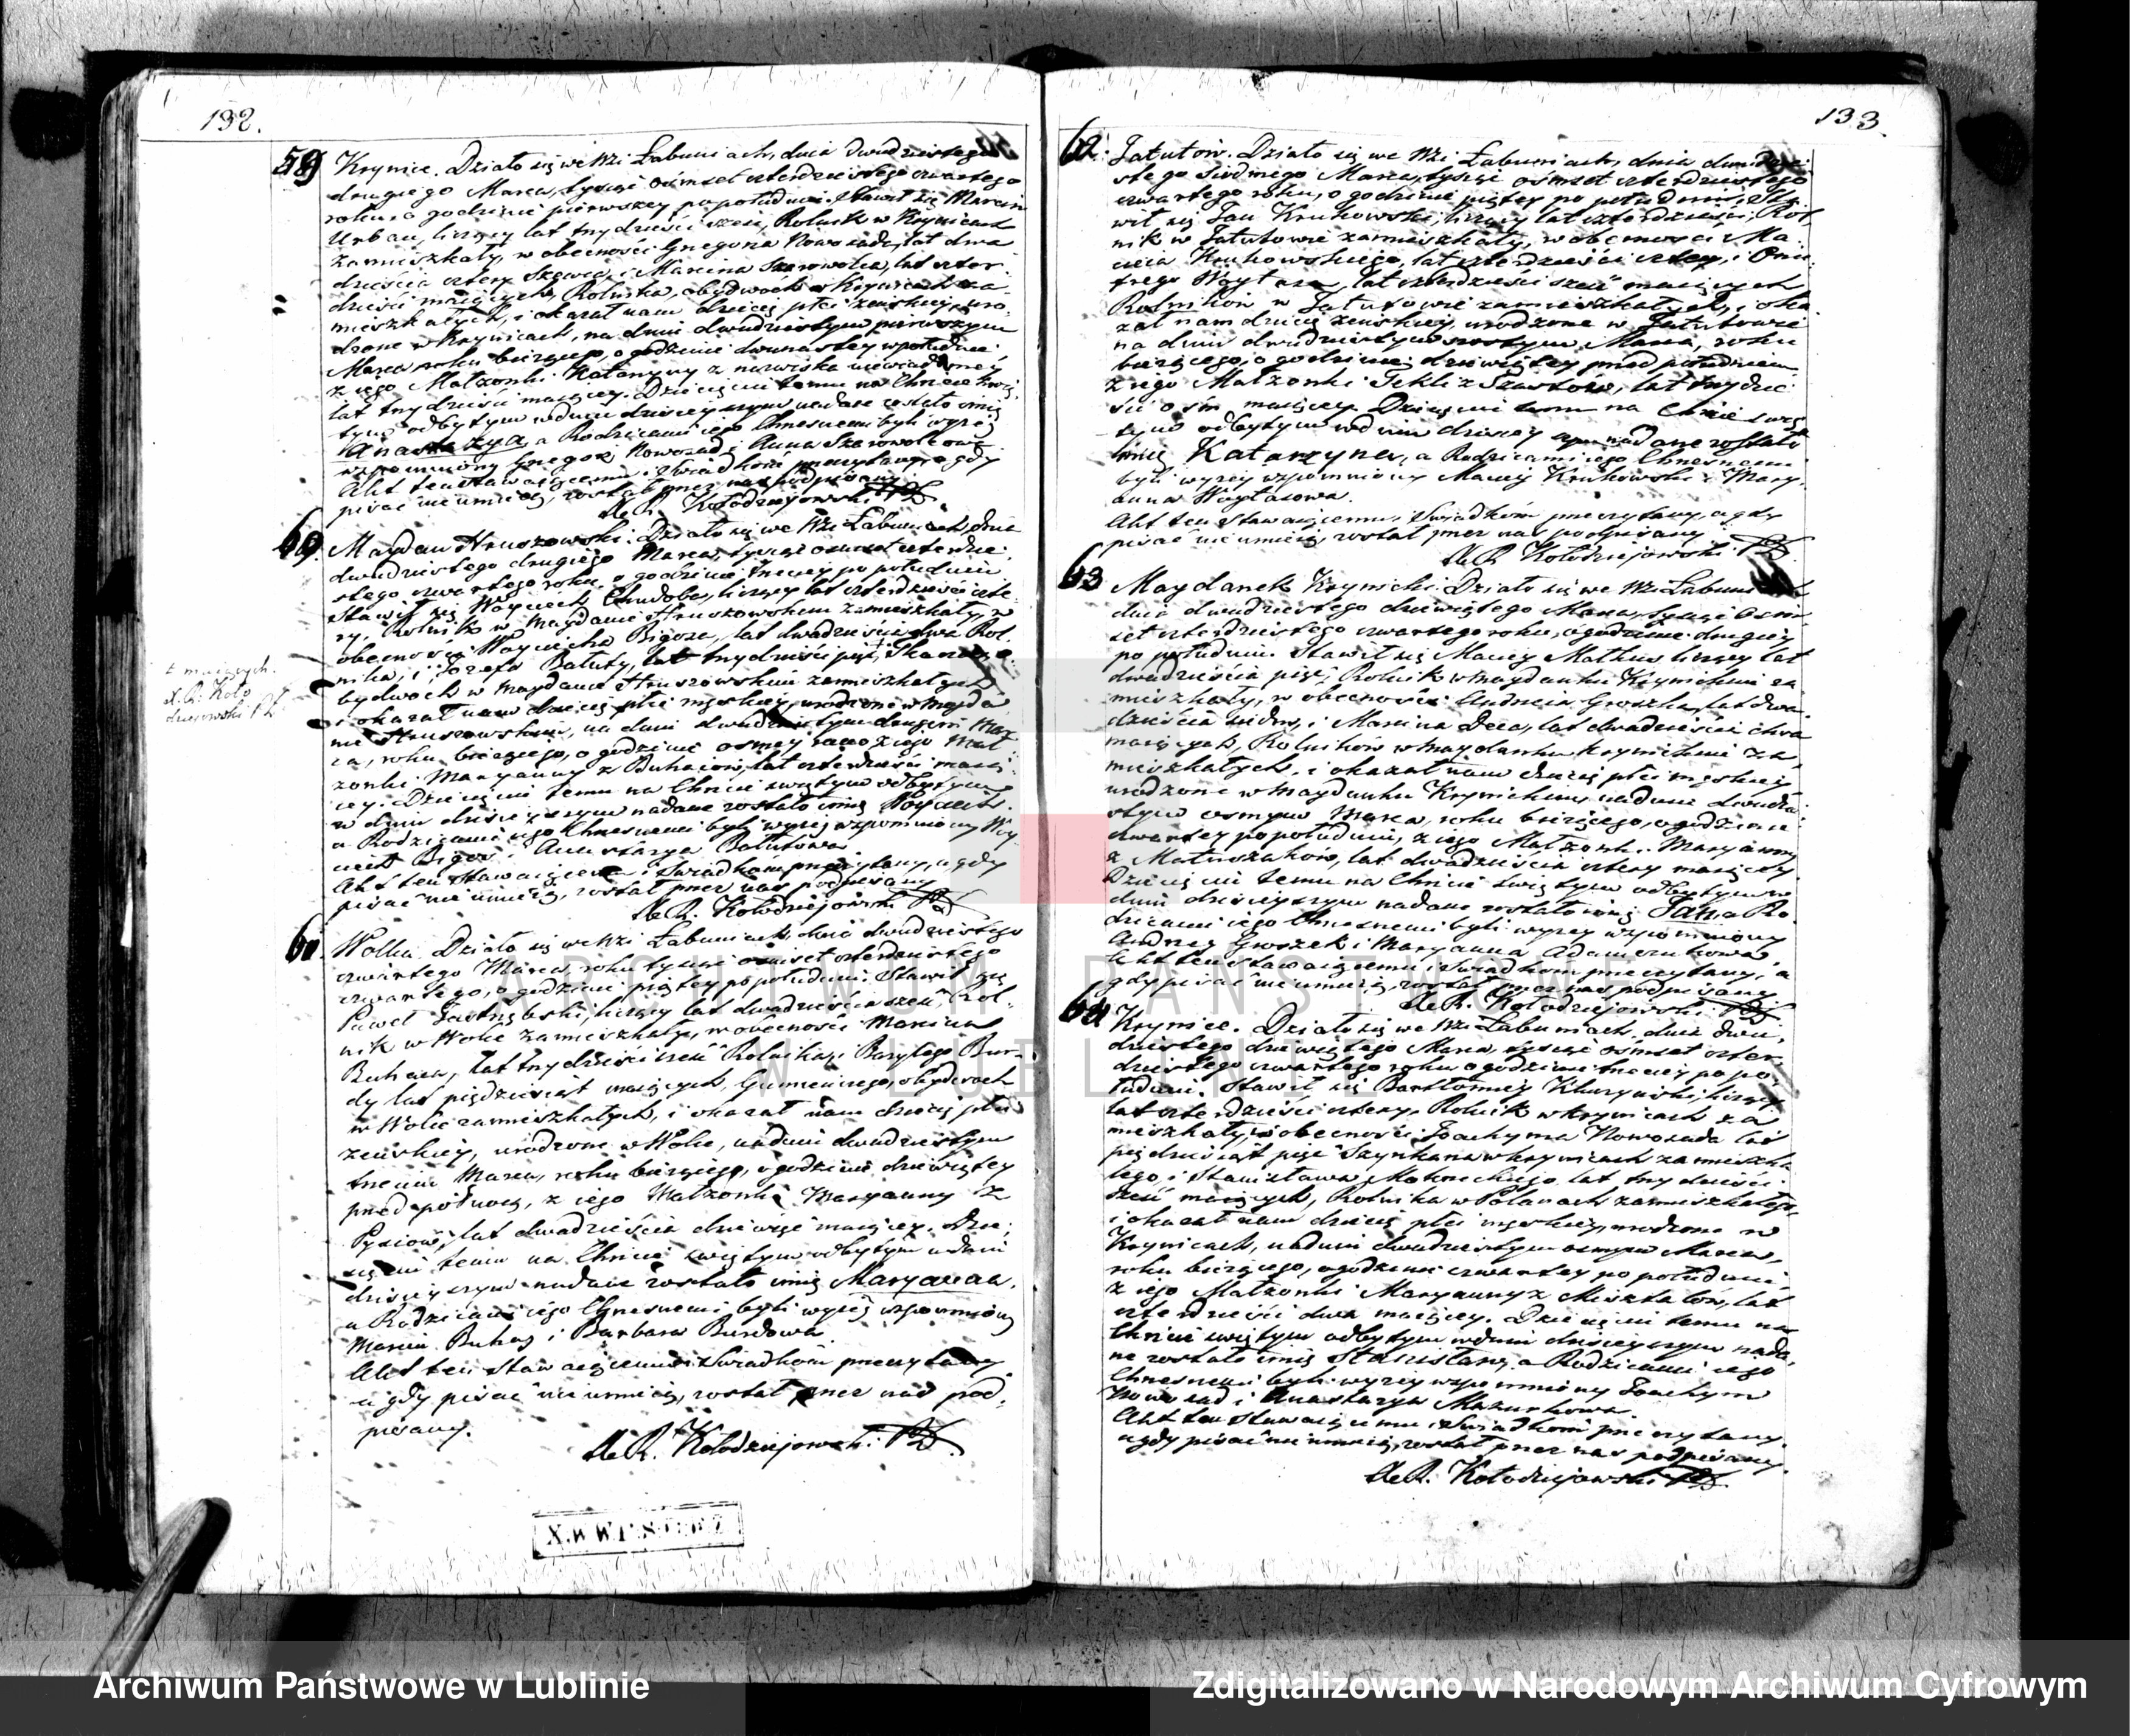 132.
59 Krynice. Działo się we Wsi Łabuniach, dnia dwudziestego
drugiego Marca, tysiąc ośmset czterdziestego czwartego
roku, o godzinie pierwszey popołudniu. Stawił się Marcin
Urban, liczący lat trzydzieści sześć, Rolnik w Krynicach
zamieszkały, w obecności Gregora Nowosada, lat dwa
dzieścia cztery Szewca, i Marcina Szarowolca, lat czter
dzieści maiących, Rolnika, obydwóch w Krynicach za
mieszkałych, i okazał nam dziecię płci żeńskiey, uro
dzone w Krynicach, na dniu dwudziestym pierwszym
Marca roku bieżącego, o godzinie dwunastey w południe
z iego Małżonki Katarzyny z nazwiska niewiadomey
lat trzydzieści maiącey. Dziecięciu temu na Chrzcie świę
tym odbytym w dniu dzisieyszym nadane zostało imię
Anastazya, a Rodzicami iego Chrzesnemi byli wyżey
wspomniony Gregor Nowosad i Anna Szarowolcowa
Akt ten stawaiącemu i Świadkom przeczytany, a gdy
pisać nie umieią, został przez nas podpisany.
X. R. Kołodziejowski
60. Maydan Hruszowski. Działo się we Wsi Łabuniach, dnia
dwudziestego drugiego Marca, tysiąc ośmset czterdzie
stego czwartego roku, o godzinie trzeciey po południu
Stawił się Woyciech Chudoba, liczący lat czterdzieści czte
ry, Rolnik w Maydanie Hruszowskim zamieszkały, w
obecności Woyciecha Bigosa, lat dwadzieścia dwa Rol
nika, i Jozefa Batuty, lat trzydzieści pięć
bydwóch w Maydanie Hruszowskim zamieszkałych
i okazał nam dziecię płci męskiey, urodzone w Mayda
nie Hruszowskim, na dniu dwudziestym drugim Mar
ca, roku bieżącego, o godzinie osmey rano z iego Mał
żonki Maryanny z Buhaiów, lat czterdzieści maią
cey. Dziecięciu temu na Chrzcie świętym odbytym
w dniu dzisieyszym nadane zostało imię Woyciech.
a Rodzicami iego Chrzesnemi byli wyżey wspomniony Woy
ciech Bigos i Anastazya Batutowa
Akt ten stawaiącemu i Świadkom przeczytany, a gdy
pisać nie umieią, został przez nas podpisany
X. R. Kołodziejowski
+ maiących.
X. R. Koło
dziejowski
61 Wolka. Działo się we Wsi Łabuniach, dnia dwudziestego
czwartego Marca, roku tysiąc ośmset czterdziestego
czwartego, o godzinie piątey popołudniu. Stawił się
Paweł Jastrzębski, liczący lat dwadzieścia sześć, Rol
nik w Wolce zamieszkały, w obecności Marcina
Buhaia, lat trzydzieści sześć Rolnika, i Bazylego Bur
dy lat pięćdziesiąt maiących, Gumiennego, obydwóch
w Wolce zamieszkałych, i okazał nam dziecię płci
żeńskiey, urodzone w Wolce, na dniu dwudziestym
trzecim Marca, roku bieżącego, o godzinie dziewiątey
przed północą, z iego Małżonki Maryanny z
Pysiów, lat dwadzieścia dziewięć maiącey. Dzie
cięciu temu na Chrzcie świętym odbytym w dniu
dzisieyszym nadane zostało imię Maryanna,
a Rodzicami iego Chrzesnemi byli wyżey wspomniony
Marcin Buhay i Barbara Burdowa.
Akt ten stawaiącemu i Świadkom przeczytany
a gdy pisać nie umieią, został przez nas pod
pisany.
X. R. Kołodziejowski
133.
62. Tatutów. Działo się we Wsi Łabuniach, dnia dwudzie
stego siódmego Marca, tysiąc ośmset czterdziestego
czwartego roku, o godzinie piątey po południu. Sta
wił się Jan Krukowski, liczący lat czterdzieści, Rol
nik w Tatutowie zamieszkały, w obecności Ma
cieia Krukowskiego, lat czterdzieści cztery, i Onu
frego Woytasa, lat czterdzieści sześć maiących
Rolników w Tatutowie zamieszkałych, i oka
zał nam dziecię żeńskiey, urodzone w Tatutowie
na dniu dwudziestym szostym Marca, roku
bieżącego, o godzinie dziewiątey przed południem
z iego Małżonki Tekli z Szastów, lat trzydzie
ści ośm maiącey. Dziecięciu temu na Chrzcie świę
tym odbytym w dniu dzisieyszym nadane zostało
imię Katarzyna, a Rodzicami iego Chrzesnemi
byli wyżey wspomniony Maciey Krukowski i Mary
anna Woytasowa.
Akt ten stawaiącemu i Świadkom przeczytany, a gdy
pisać nie umieią, został przez nas podpisany
X. R. Kołodziejowski
63 Maydanek Krynicki. Działo się we Wsi Łabuniach
dnia dwudziestego dziewiątego Marca, tysiąc ośm
set czterdziestego czwartego roku, o godzinie drugiey
po południu. Stawił się Maciey Mathus liczący lat
dwadzieścia pięć, Rolnik w Maydanku Krynickim za
mieszkały, w obecności Andrzeia Groszka, lat dwa
dzieścia siedm, i Marcina Deca, lat dwadzieścia dwa
maiących, Rolników w Maydanku Krynickim za
mieszkałych, i okazał nam dziecię płci męskiey
urodzone w Maydanku Krynickim, na dniu dwudzie
stym osmym Marca, roku bieżącego, o godzinie
czwartey popołudniu, z iego Małżonki Maryanny
z Matuszaków, lat dwadzieścia cztery maiącey.
Dziecięciu temu na Chrzcie świętym odbytym w
dniu dzisieyszym nadane zostało imię Jan, a Ro
dzicami iego Chrzesnemi byli wyżey wspomniony
Andrzey Groszek i Maryanna Adamczukowa
Akt ten stawaiącemu i Świadkom przeczytany, a
gdy pisać nie umieią, został przez nas podpisany
X. R. Kołodziejowski
64 Krynice. Działo się we Wsi Łabuniach, dnia dwu
dziestego dziewiątego Marca, tysiąc ośmset czter
dziestego czwartego roku, o godzinie trzeciey po po
łudniu. Stawił się Bartłomiey Kluczyński, liczący
lat czterdzieści cztery, Rolnik w Krynicach za
mieszkały, w obecności Joachyma Nowosada lat
pięćdziesiąt pięć Szynkarza w Krynicach zamieszka
łego, i Stanisława lat trzydzieści
sześć maiących, Rolnika w Polanach zamieszkałego,
i okazał nam dziecię płci męskiey, urodzone w
Krynicach, na dniu dwudziestym osmym Marca,
roku bieżącego, o godzinie czwartey po południu
z iego Małżonki Maryanny z Misztalów, lat
czterdzieści dwa maiącey. Dziecięciu temu na
Chrzcie świętym odbytym w dniu dzisieyszym nada
ne zostało imię Stanisław, a Rodzicami iego
Chrzesnemi byli wyżey wspomniony Joachym
Nowosad i Anastazya Mazurkowa.
Akt ten stawaiącemu i Świadkom przeczytany,
a gdy pisać nie umieią, został przez nas podpisany.
X. R. Kołodziejowski
ARCHIWUM PAŃSTWOWE
W LUBLINIE
Archiwum Państwowe w Lublinie
Zdigitalizowano w Narodowym Archiwum Cyfrowym